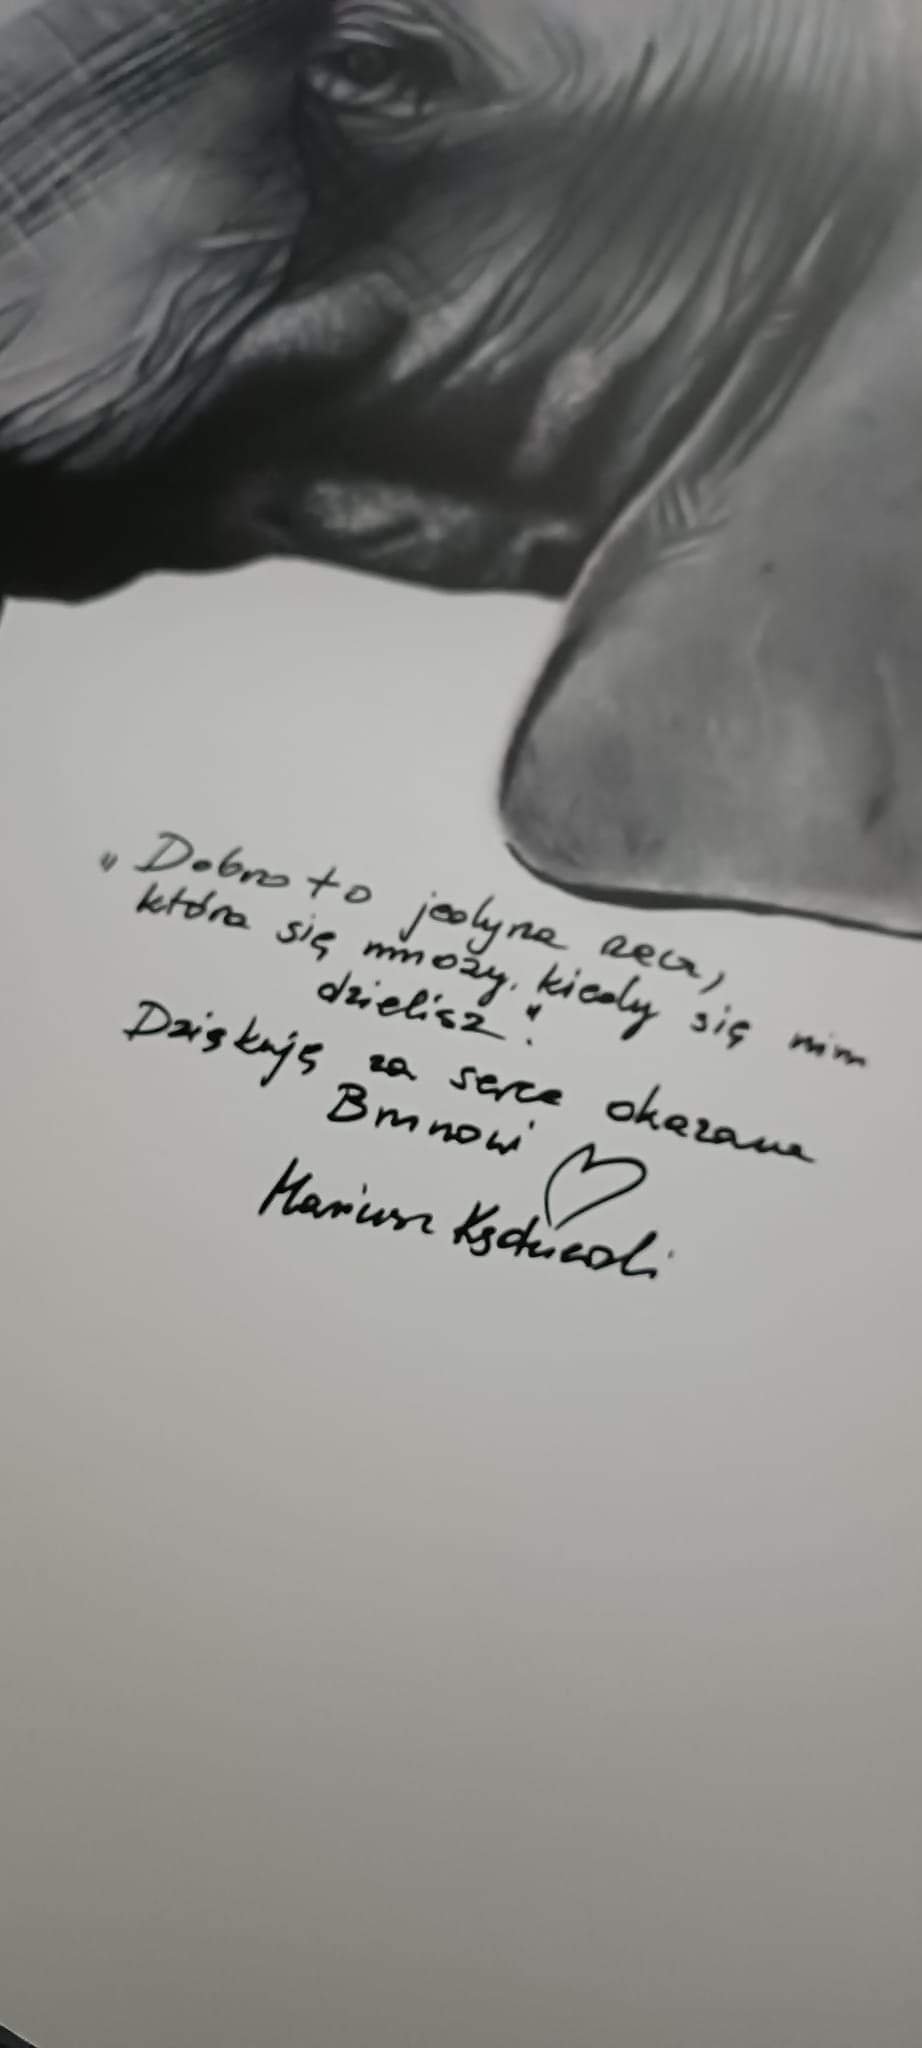 „Dobro to jedyna rzecz,
która się mnoży, kiedy się nim
dzielisz."
Dziękuję za serce okazane
Brunowi
Mariusz